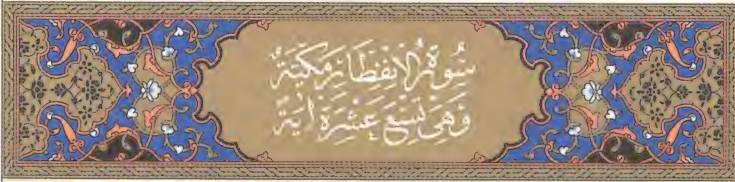 سُورَةُ الْاِنْفِطَارِ مَكِّيَّةٌ
وَهِيَ تِسْعَ عَشْرَةَ اٰيَةً